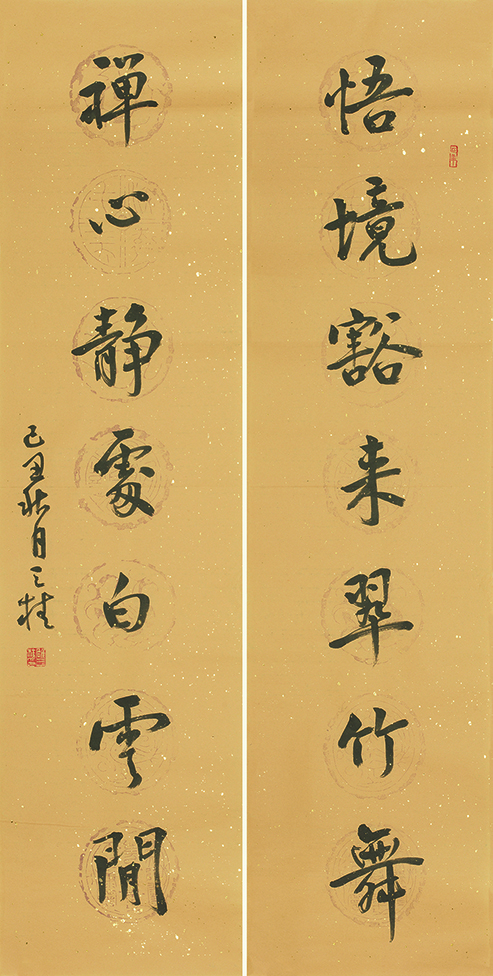 悟境豁来翠竹舞
禅心静處白雲閒
己丑秋月